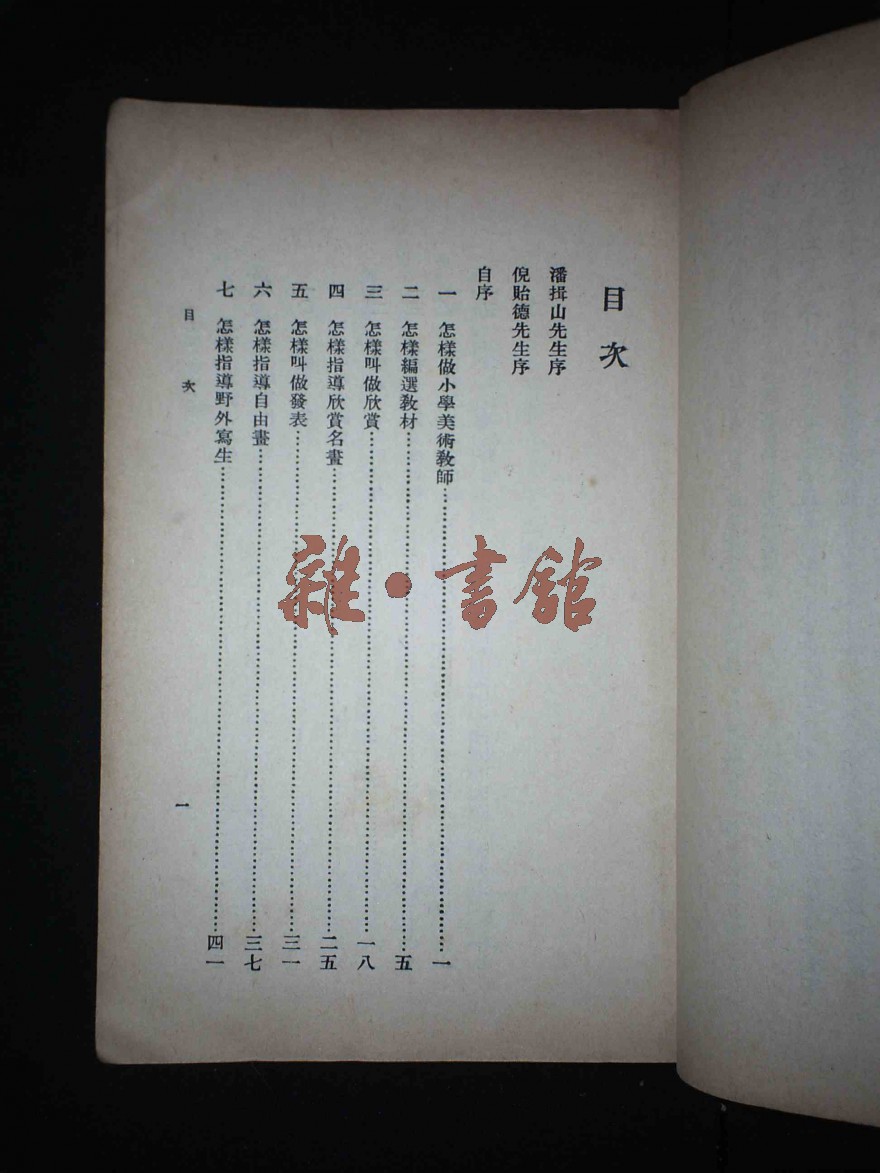 目次
潘揖山先生序
倪貽德先生序
自序
一 怎樣做小學美術教師……一
二 怎樣編選教材……五
三 怎樣叫做欣賞……一八
四 怎樣指導欣賞名畫……二五
五 怎樣叫做發表……三一
六 怎樣指導自由畫……三七
七 怎樣指導野外寫生……四一
目次
一
雜·書館